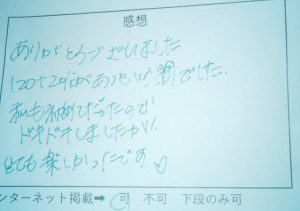 感想
ありがとうございました
120+20分があっという間でした。
私も初めてだったので
ドキドキしましたが、
とても楽しかったです♡
ンターネット掲載➡ 可 不可 下段のみ可